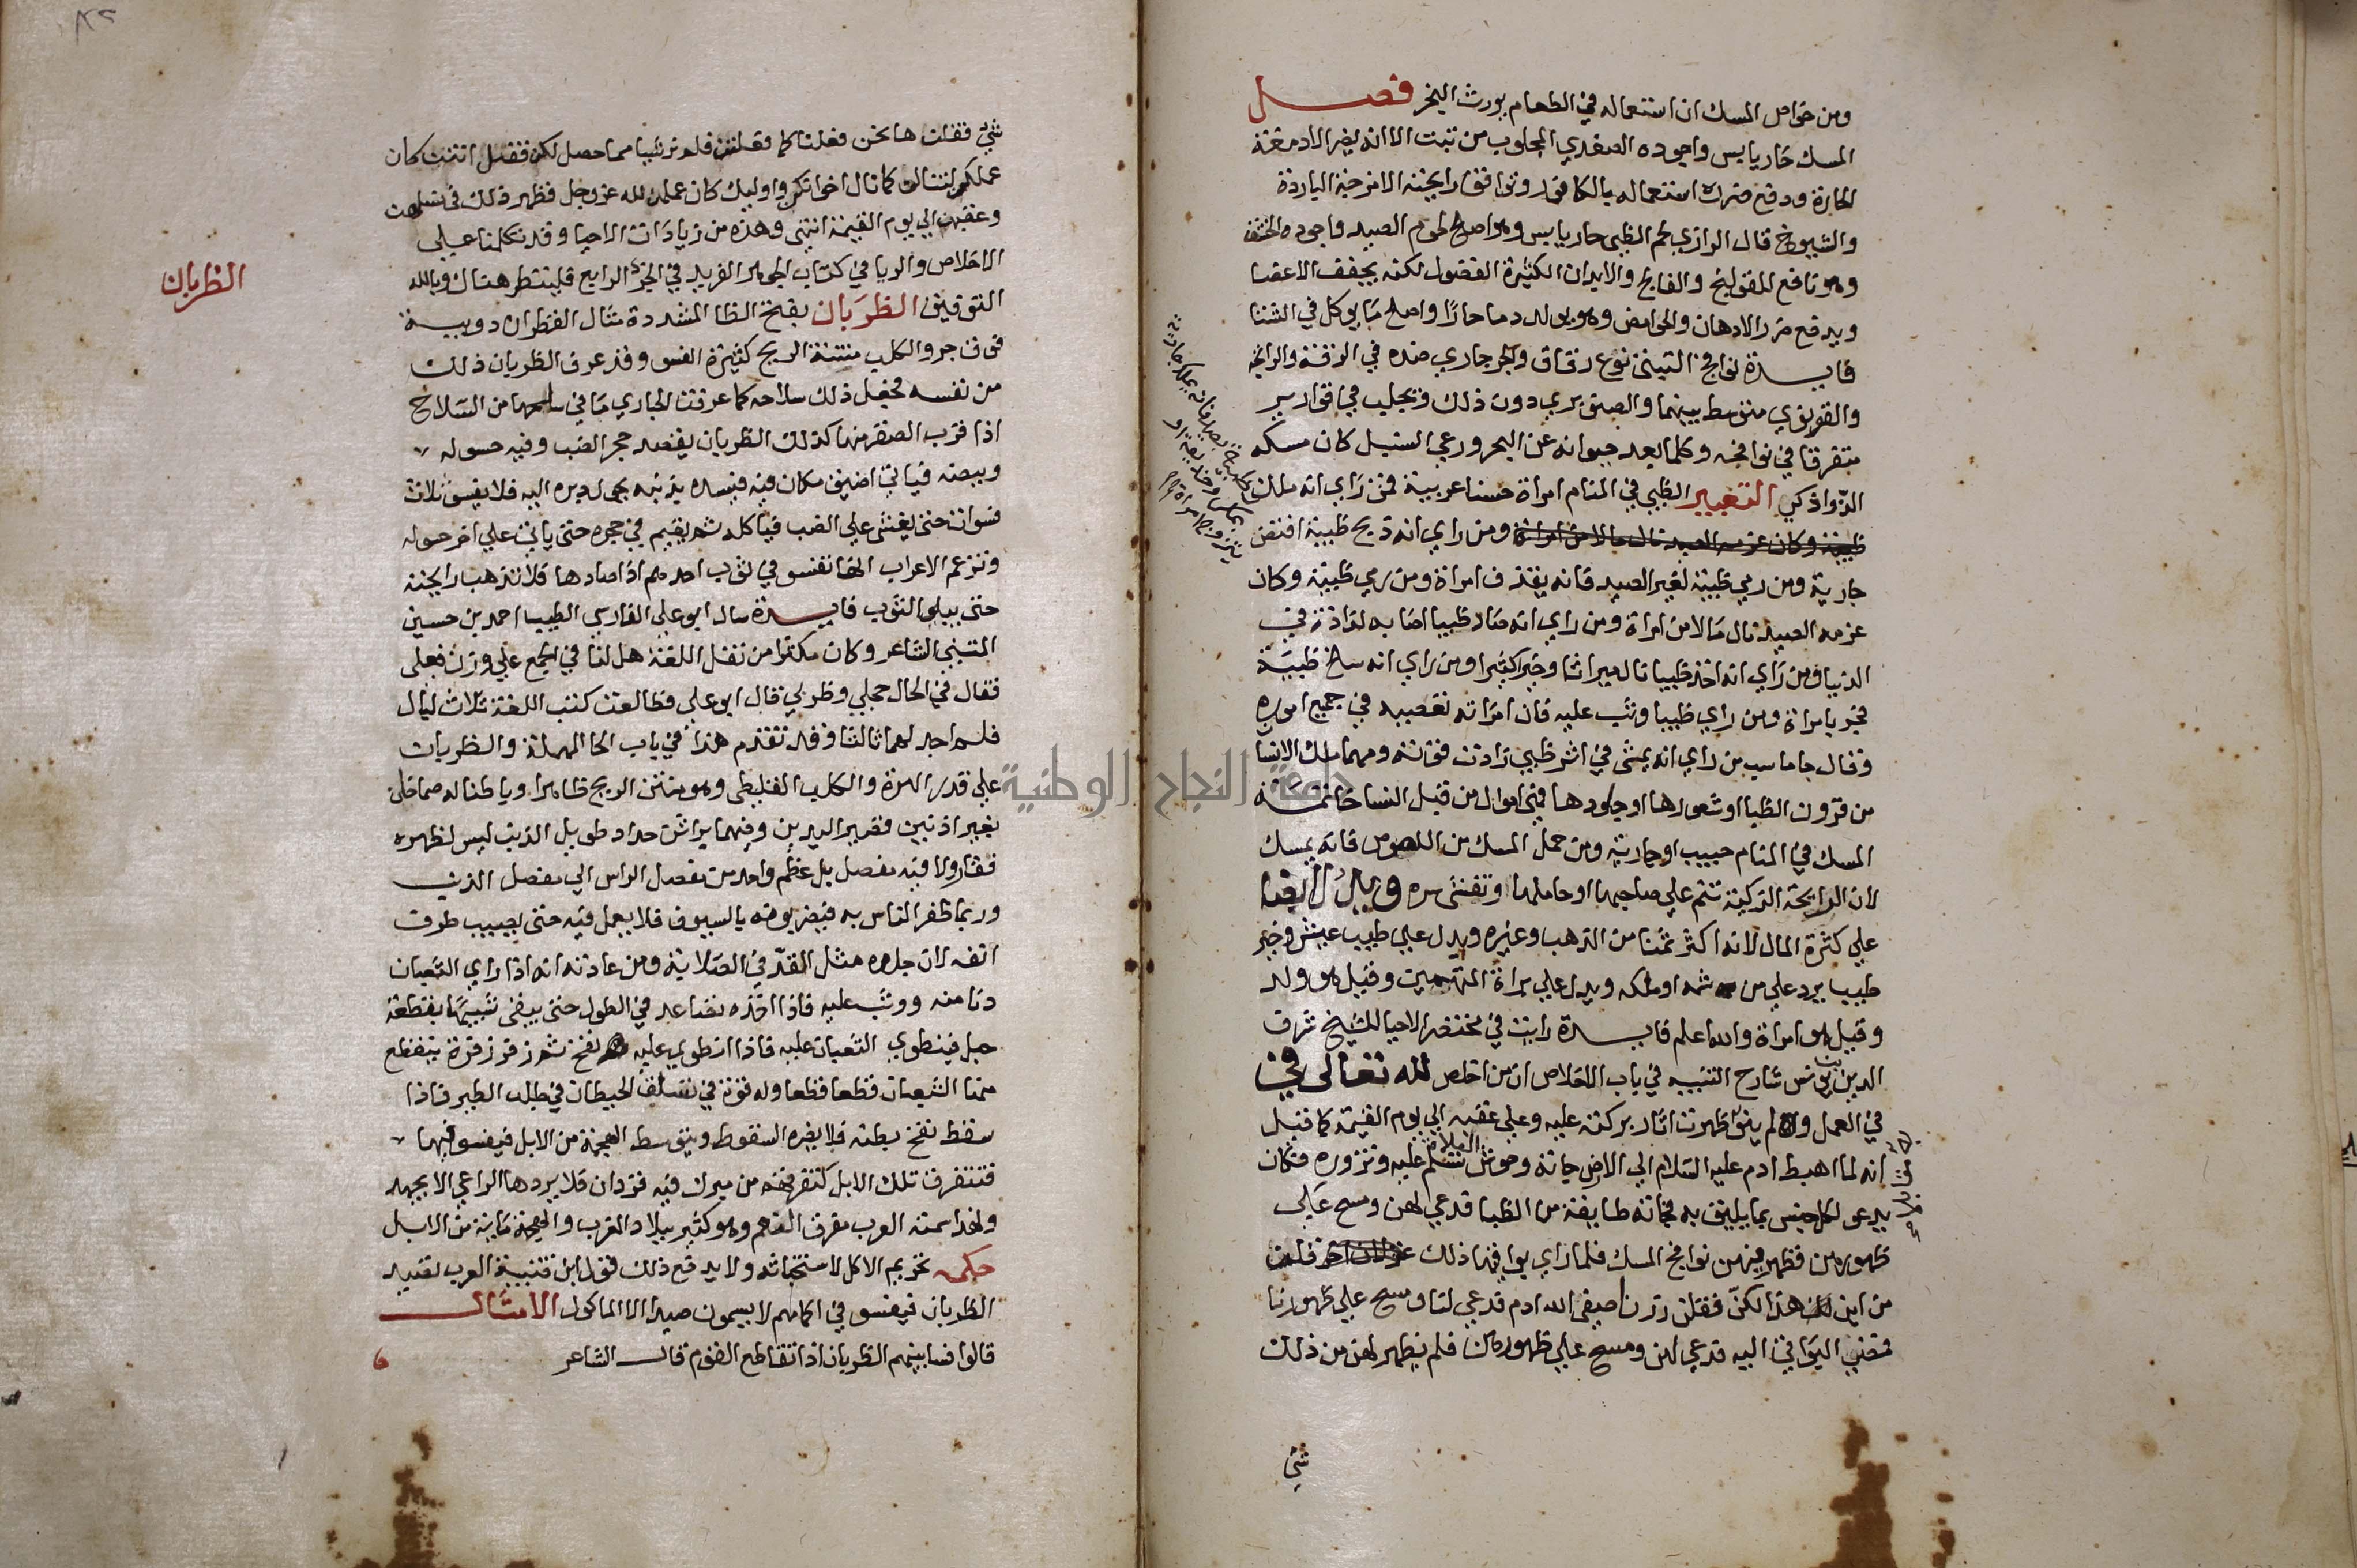 ومن خواص المسك ان استعماله في الطعام يورث البخر فصل
المسك حار يابس واجوده الصغدي المجلوب من تبت الا انه يضر الادمغة
الحارة ودفع ضرره استعماله بالكافور وتوافق رايحته الامزجة الباردة
والشيوخ قال الرازي لحم الظبي حار يابس وهو اصلح لحوم الصيد واجوده الخشف
وهو نافع للقولنج والفالج والابدان الكثيرة الفضول لكنه يجفف الاعضا
ويدفع ضرر الادهان والحوامض وهو يولد دما حارا واصلح ما يوكل في الشتا
فايدة نوافج التبتي نوع رقاق والجرجاري ضده في الرقة والرايحة
والقوينوي متوسط بينهما والصنوبري دون ذلك ويجلب في قوارير
متفرقا في نوافجه وكلما بعد حيوانه عن البحر ورعي السنبل كان مسكه
الد واذكي التعبير الظبي في المنام امراة حسنا عربية فمن راي انه ملك
ومن راي انه ذبح ظبية افتض
جارية ومن رمي ظبية لغير الصيد فانه يقذف امراة ومن رمي ظبية وكان
عزمه الصيد نال مالا من امراة ومن راي انه صاد ظبيا اصابه لذاذة في
الدنيا ومن راي انه اخذ ظبيا نال ميراثا وخيرا كثيرا ومن راي انه سلخ ظبية
فجر بامراة ومن راي ظبيا وثب عليه فان امراته تعصيه في جميع اموره
وقال جاماسب من راي انه يمشي في اثر ظبي زادت قوته ومهما ملك الانسا
من قرون الظبا او شعورها او جلودها فهي اموال من قبل النسا خاتمة
المسك في المنام حبيب او جارية ومن حمل المسك من اللصوص فانه يمسك
لان الرايحة الزكية تنم علي صاحبها او حاملها وتفشي سره ويدل ايضا
علي كثرة المال لانه اكثر ثمنا من الذهب وغيره ويدل علي طيب عيش وخبر
طيب يرد علي من شمه او ملكه ويدل علي براة المتهمين وقيل هو ولد
وقيل هو امراة والله اعلم فايدة رايت في مختصر الاحيا للشيخ شرف
الدين بن يونس شارح التنبيه في باب الاخلاص ان من اخلص لله تعالى في
في العمل ولم ينو ظهرت اثار بركته عليه وعلي عقبه الي يوم القيمة كما قيل
انه لما اهبط ادم عليه السلام الي الارض جاته وحوش الفلاة تسلم عليه وتزوره فكان
يدعي لكل جنس بما يليق به فجاته طايفة من الظبا فدعي لهن ومسح علي
ظهورهن فظهر فيهن نوافج المسك فلما راي بواقيها ذلك
من اين هذا لكن فقلن زرنا صفي الله ادم فدعي لنا ومسح علي ظهورنا
فمضي البواقي اليه فدعي لهن ومسح علي ظهورهن فلم يظهر لهن من ذلك
شي
شي فقلن ها نحن فعلنا كما فعلتن فلم نر شيا مما حصل لكن فقيل انتن كان
عملكن لتنالن كما نال اخوانكن واوليك كان عملهن لله عز وجل فظهر ذلك في نسلهن
وعقبهن الي يوم القيمة انتهي وهذه من زيادات الاحيا وقد تكلمنا علي
الاخلاص والريا في كتاب الجوهر الفريد في الجزء الرابع فلينظر هناك وبالله
التوفيق الظربان بفتح الظا المشددة مثال القطران دويبة
فوق جرو الكلب منتنة الريح كثيرة الفسو وقد عرف الظربان ذلك
من نفسه فجعل ذلك سلاحه كما عرفت الحباري ما في سلحها من السلاح
اذا قرب الصقر منها كذلك الظربان يقصد جحر الضب وفيه حسوله
وبيضه فياتي اضيق مكان فيه فيسده بذنبه يحول دبره اليه فلا يفسو ثلاث
فسوات حتي يغشي علي الضب فياكله ثم يقيم في جحره حتي ياتي علي اخر حسوله
وتزعم الاعراب انها تفسو في ثوب احدهم اذا صادها فلا تذهب رايحته
حتي يبلي الثوب فايدة سال ابو علي الفارسي الطيب احمد بن حسين
المتنبي الشاعر وكان مكثرا من نقل اللغة هل لنا في الجمع علي وزن فعلي
فقال في الحال حجلي وظربي قال ابو علي فطالعت كتب اللغة ثلاث ليال
فلم اجد لهما ثالثا وقد تقدم هذا في باب الحا المهملة والظربان
علي قدر الهرة والكلب القلطي وهو منتن الريح ظاهرا وباطنا له صماخان
بغير اذنين قصير اليدين وفيهما براثن حداد طويل الذنب ليس لظهره
فقار ولا فيه مفصل بل عظم واحد من مفصل الراس الي مفصل الذنب
وربما ظفر الناس به فيضربونه بالسيوف فلا يعمل فيه حتي يصيب طرف
انفه لان جلده مثل القد في الصلابة ومن عادته انه اذا راي الثعبان
دنا منه ووثب عليه فاذا اخذه تضاعد في الطول حتي يبقي شبيها بقطعة
حبل فينطوي الثعبان عليه فاذا انطوي عليه نفخ ثم زفر زفرة يتقطع
منها الثعبان قطعا قطعا وله قوة في تسلق الحيطان في طلب الطير فاذا
سقط نفخ بطنه فلا يضره السقوط ويتوسط الهجمة من الابل فيفسو فيها
فتتفرق تلك الابل كتفرقها من مبرك فيه قردان فلا يردها الراعي الا بجهد
ولهذا سمته العرب مفرق النعم وهو كثير ببلاد العرب والهجمة ماية من الابل
حكمه تحريم الاكل لاستخباثه ولا يدفع ذلك قول ابن قتيبة العرب تصيد
الظربان فيفسو في اكمامهم لا يسمون صيدا الا الماكول الامثال
قالوا فسا بينهم الظربان اذا تقاطع القوم قال الشاعر
الظربان
جامعة النجاح الوطنية